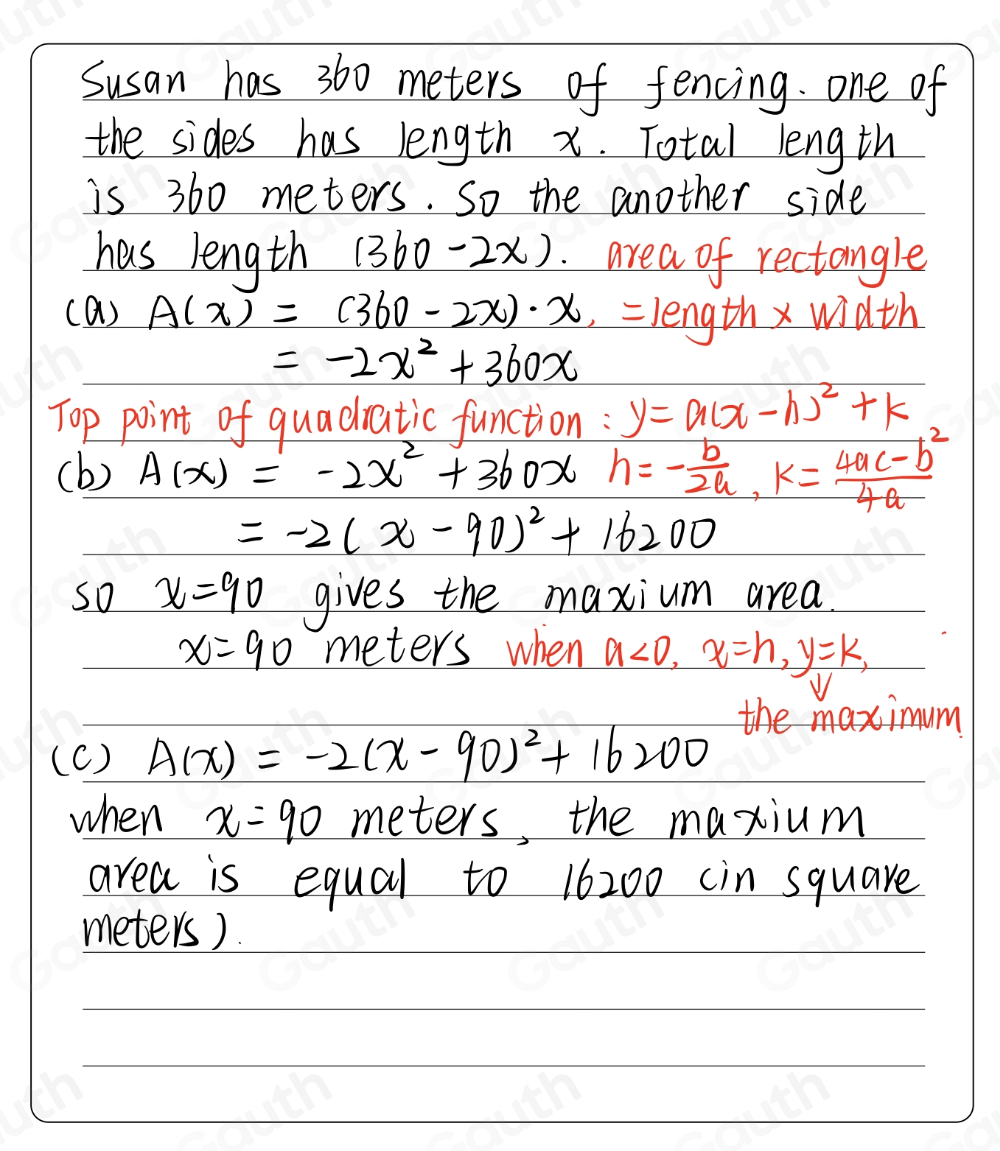 Susan has 360 meters of fencing. one of
the sides has length x. Total length
is 360 meters. So the another side
has length (360-2x). area of rectangle
(a) A(x) = (360-2x)·x, =length × width
= -2x² + 360x
Top point of quadratic function : y=a(x-h)²+k
(b) A(x) = -2x² + 360x h=-b/2a, k=(4ac-b²)/4a
= -2(x-90)²+16200
so x=90 gives the maxium area.
x=90 meters when a<0, x=h, y=k,
↓
the maximum
(c) A(x) = -2(x-90)²+16200
when x=90 meters, the maxium
area is equal to 16200 cin square
meters).